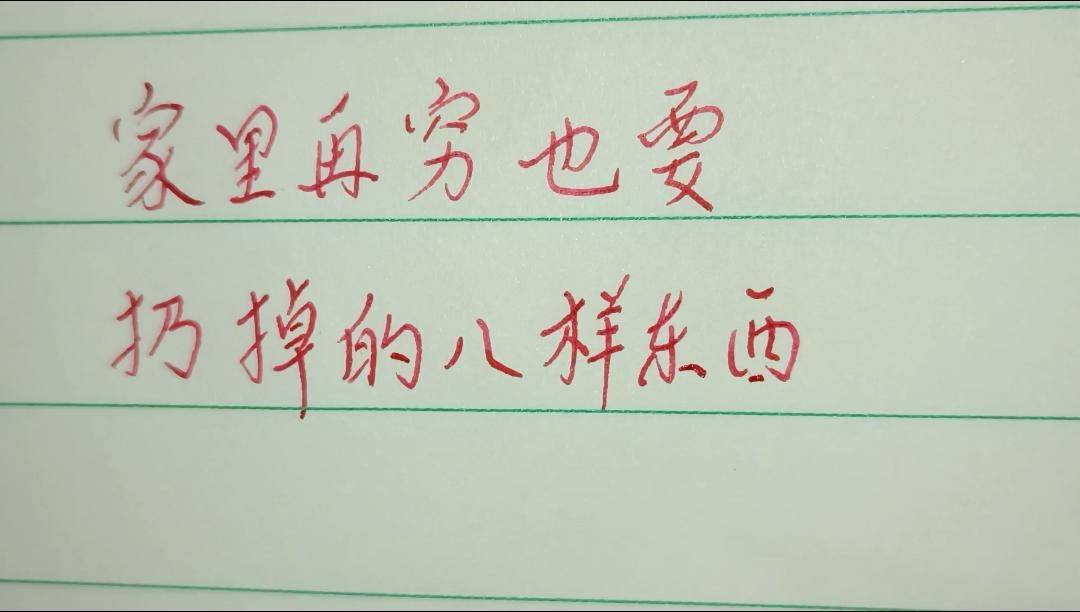 家里再穷也要
扔掉的八样东西